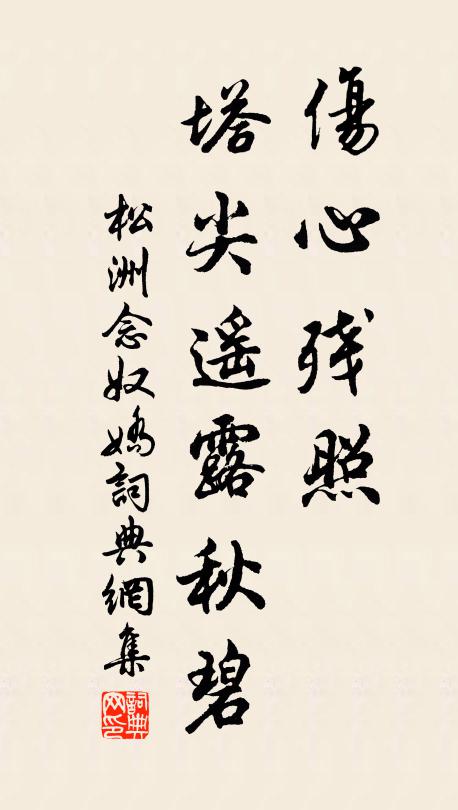 傷心残照
塔尖遥露秋碧
松洲念奴嬌詞典網集
詞典网印